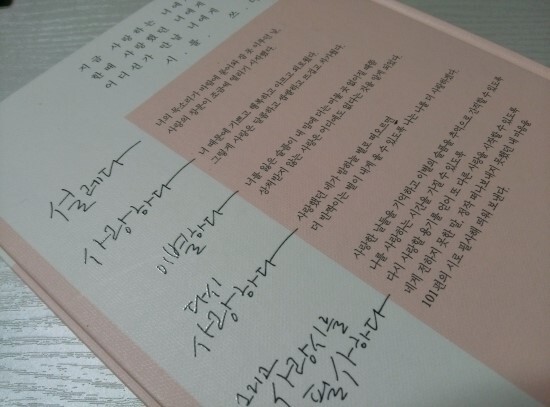 지금 사랑하는 너에게
한때 사랑했던 너에게
어디선가 만날 너에게
시를, 쓰
너의 목소리가 바람에 잠 못 이루던 날,
사랑의 창문이 조금씩 열리기 시작했다.
너 때문에 기쁘고 행복하고 아프고 외로웠다.
그렇게 사랑은 달콤하고 뜨겁고 차가웠다.
너를 잃은 슬픔이 내 맘에
상처받지 않는 사랑은 어디에도 없다는 것을 알게 되었다.
사랑했던 네가 밤하늘 별로 떠오르면
더 반짝이는 별이 내게 올 수 있도록 나는 나를 더 사랑하겠다.
사랑한 날들을 기억하고 이별의 슬픔을 추억으로 간직할 수 있도록
나를 사랑하는 시간을 가질 수 있도록
다시 사랑할 용기를 얻어 또 다른 사랑을 시작할 수 있도록
네게 전하지 못한 말, 정작 떠나보내지 못했던 내 마음을
101편의 시로 필사해 띄워 보낸다.
설레다
사랑하다
이별하다
다시
사랑하다
그리고
사랑시를
필사하다